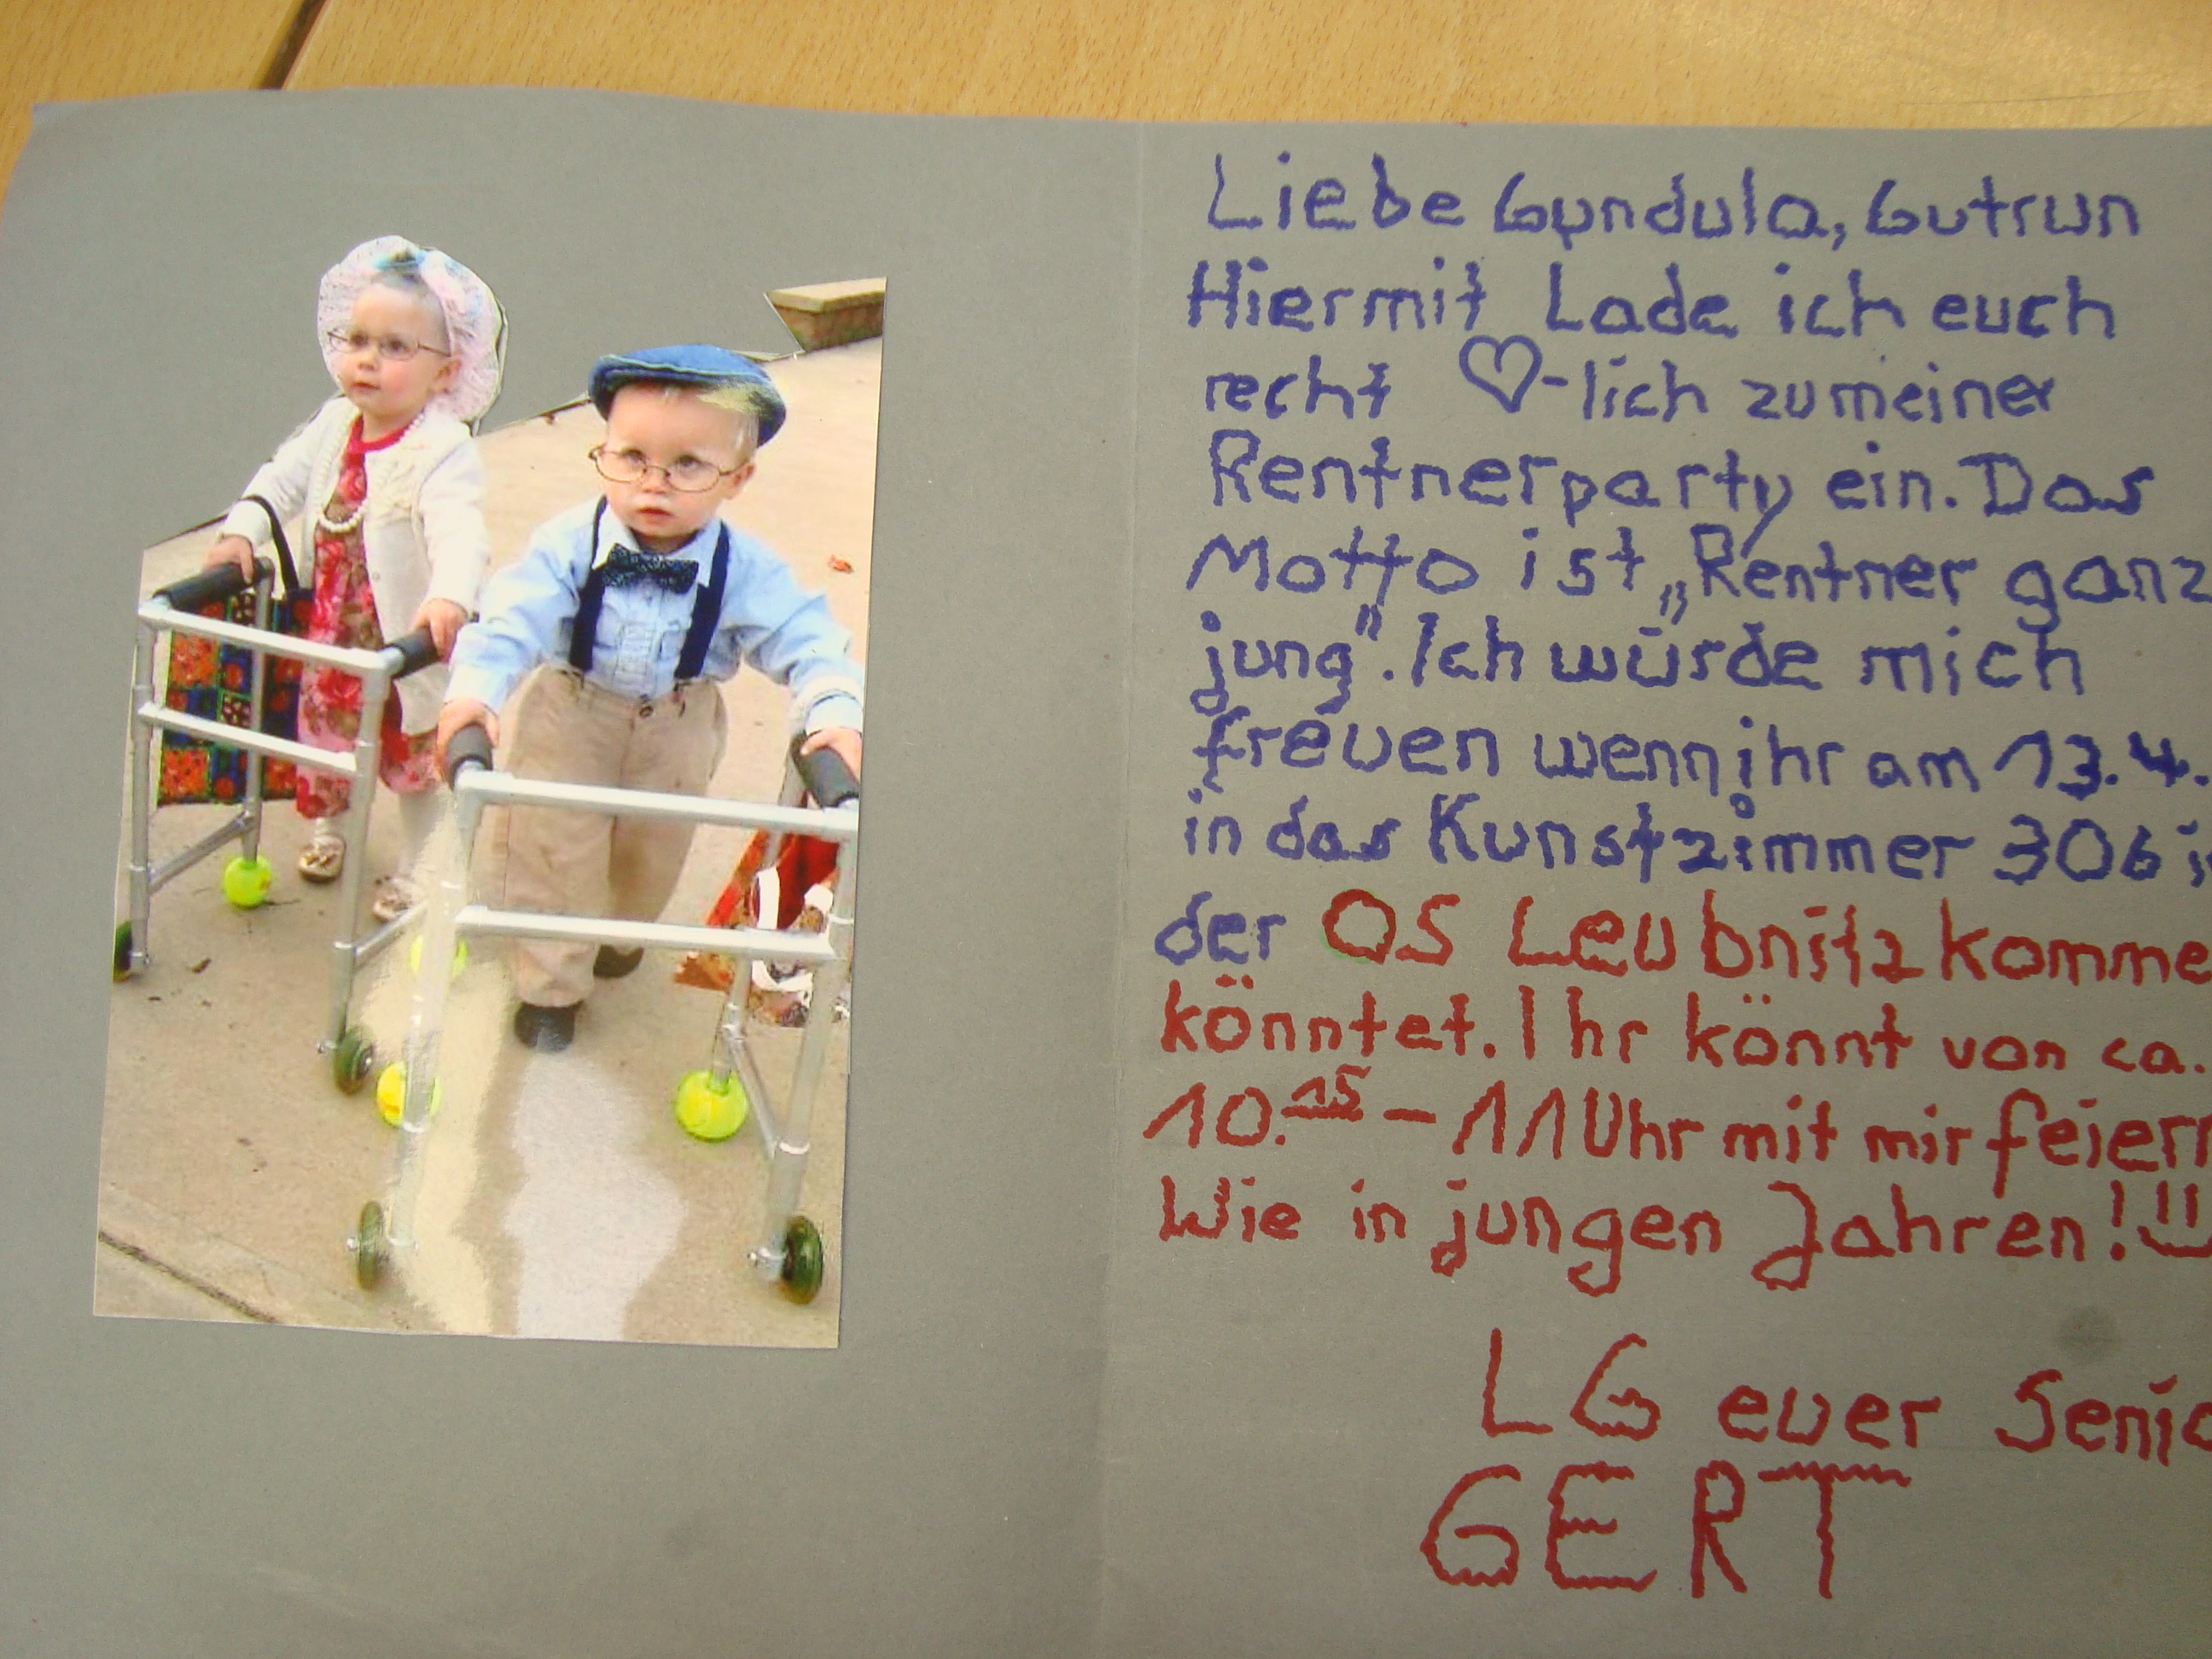 Liebe Gundula, Gutrun
Hiermit Lade ich euch
recht ♡-lich zu meiner
Rentnerparty ein. Das
Motto ist „Rentner ganz
jung". Ich würde mich
freuen wenn ihr am 13.4.
in das Kunstzimmer 306 i
der OS Leubnitz komme
könntet. Ihr könnt von ca.
10.15 - 11 Uhr mit mir feiern
Wie in jungen Jahren!
LG euer Senio
GERT